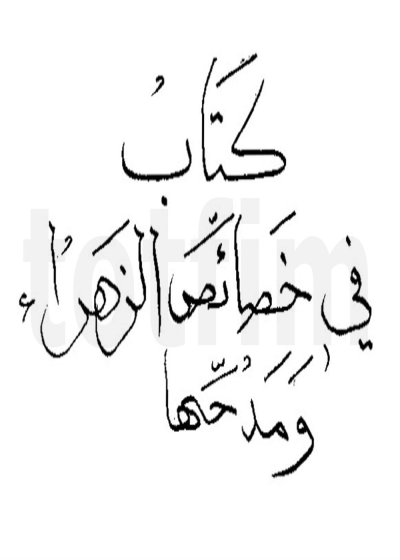 كتابُ
في خصائص الزهراء
ومدحها
totfim